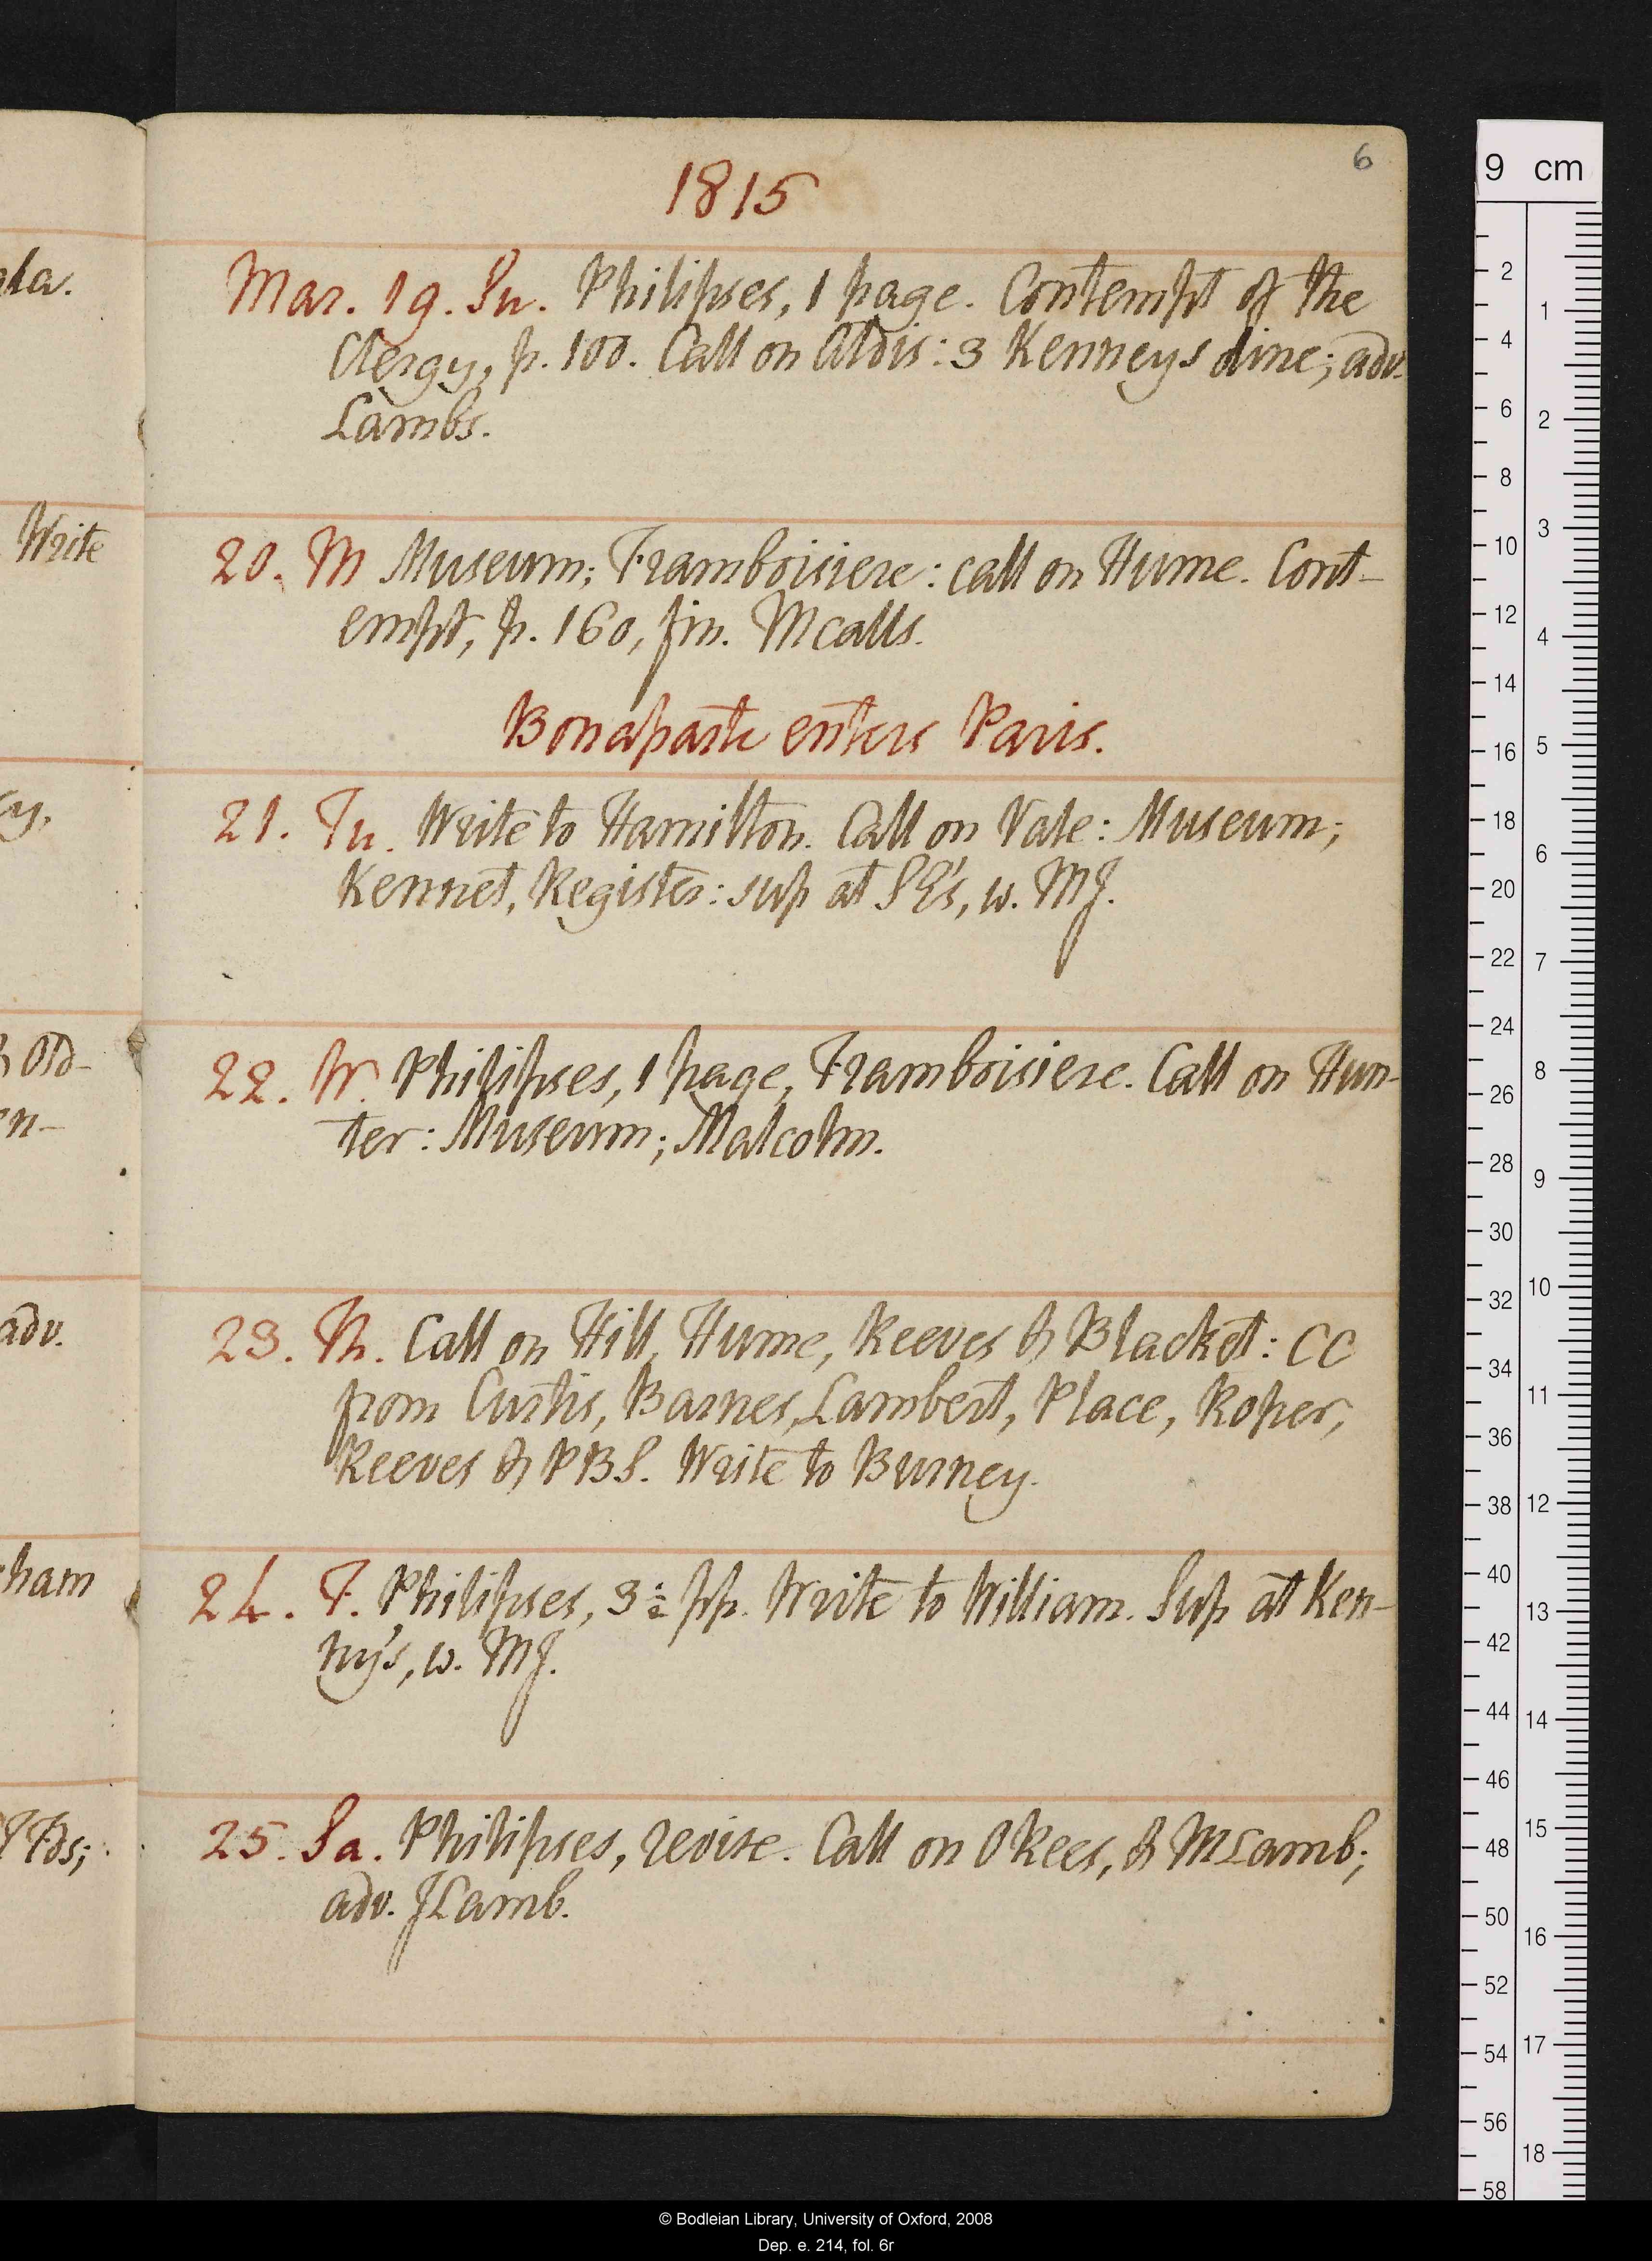 6
1815
Mar. 19. Su. Philipses, 1 page. Contempt of the
Clergy, p. 100. Call on Aldis: 3 Kenneys dine; adv.
Lambs.
Write
20. M Museum; Framboisiere: call on Hume. Cont-
empt, p. 160, fin. M calls.
Bonaparte enters Paris.
21. Tu. Write to Hamilton. Call on Vale: Museum;
Kennet, Register: sup at SE's, w. MJ.
22. W. Philipses, 1 page, Framboisiere. Call on Hun-
ter: Museum; Malcolm.
adv.
23. Th. Call on Hill, Hume, Reeves & Blacket: CC
from Curtis, Barnes, Lambert, Place, Roper,
Reeves & PBS. Write to Burney.
ham
24. F. Philipses, 3 1/2 pp. Write to William. Sup at Ken-
ny's, w. MJ.
25. Sa. Philipses, revise. Call on O Rees, & M Lamb;
adv. J Lamb.
9 cm
2
4
6
8
10
12
14
16
18
20
22
24
26
28
30
32
34
36
38
40
42
44
46
48
50
52
54
56
58
1
2
3
4
5
6
7
8
9
10
11
12
13
14
15
16
17
18
© Bodleian Library, University of Oxford, 2008
Dep. e. 214, fol. 6r